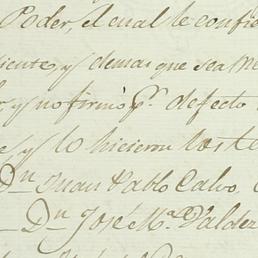 Poder, el cual le confie
diente, y demas que sea me
y no firmó pr. defecto
e y lo hicieron los te
Dn Juan Pablo Calvo,
Dn José Ma. Valdez